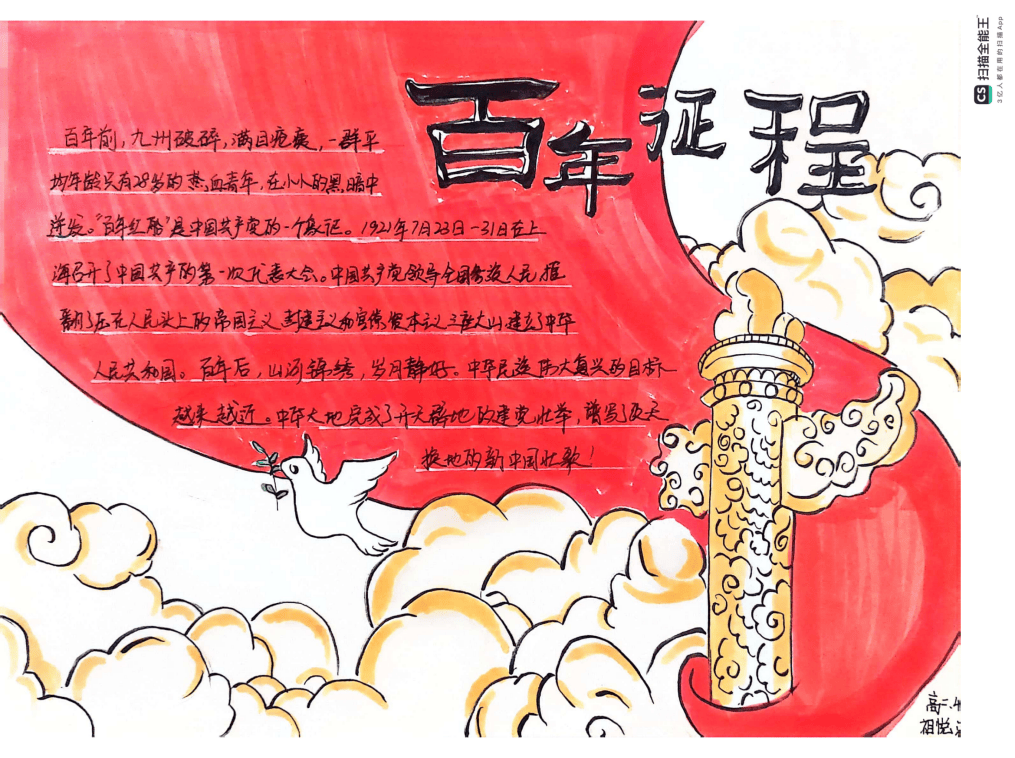 百年征程
百年前,九州破碎,满目疮痍,一群平
均年龄只有28岁的热血青年,在小小的黑暗中
迸发。“百年红船”是中国共产党的一个象征。1921年7月23日-31日在上
海召开了中国共产的第一次代表大会。中国共产党领导全国各族人民推
翻了压在人民头上的帝国主义、封建主义和官僚资本主义三座大山建立了中华
人民共和国。百年后,山河锦绣,岁月静好。中华民族伟大复兴的目标
越来越近。中华大地完成了开天辟地的建党壮举,谱写了改天
换地的新中国壮歌!
高二.
CS 扫描全能王
3亿人都在用的扫描App